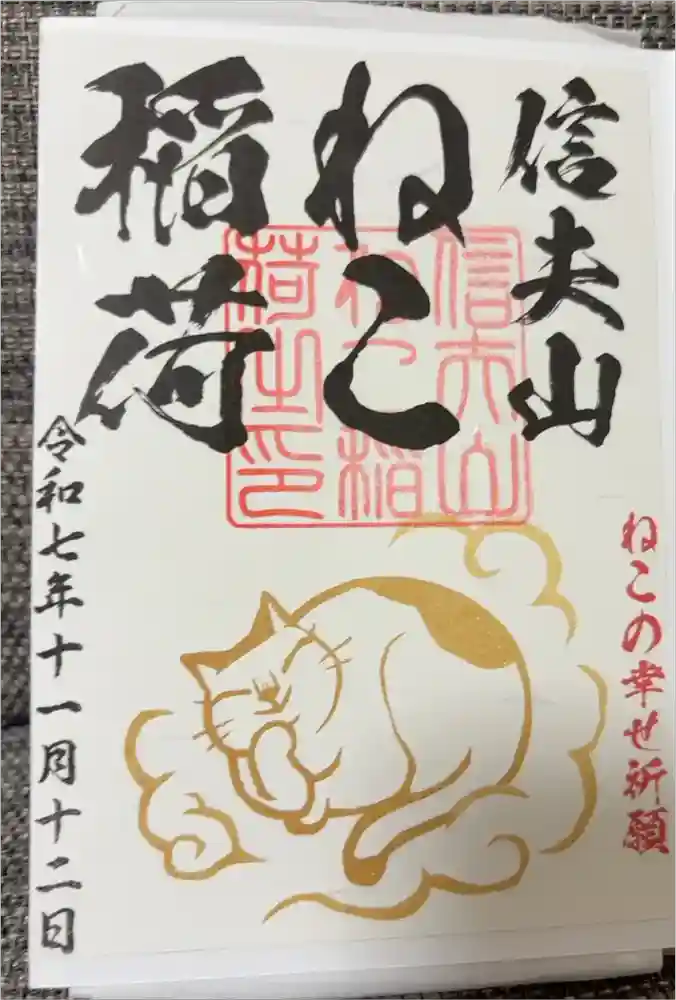 信夫山
ねこ
稲荷
信夫山
ねこ稲
荷之印
ねこの幸せ祈願
令和七年十一月十二日